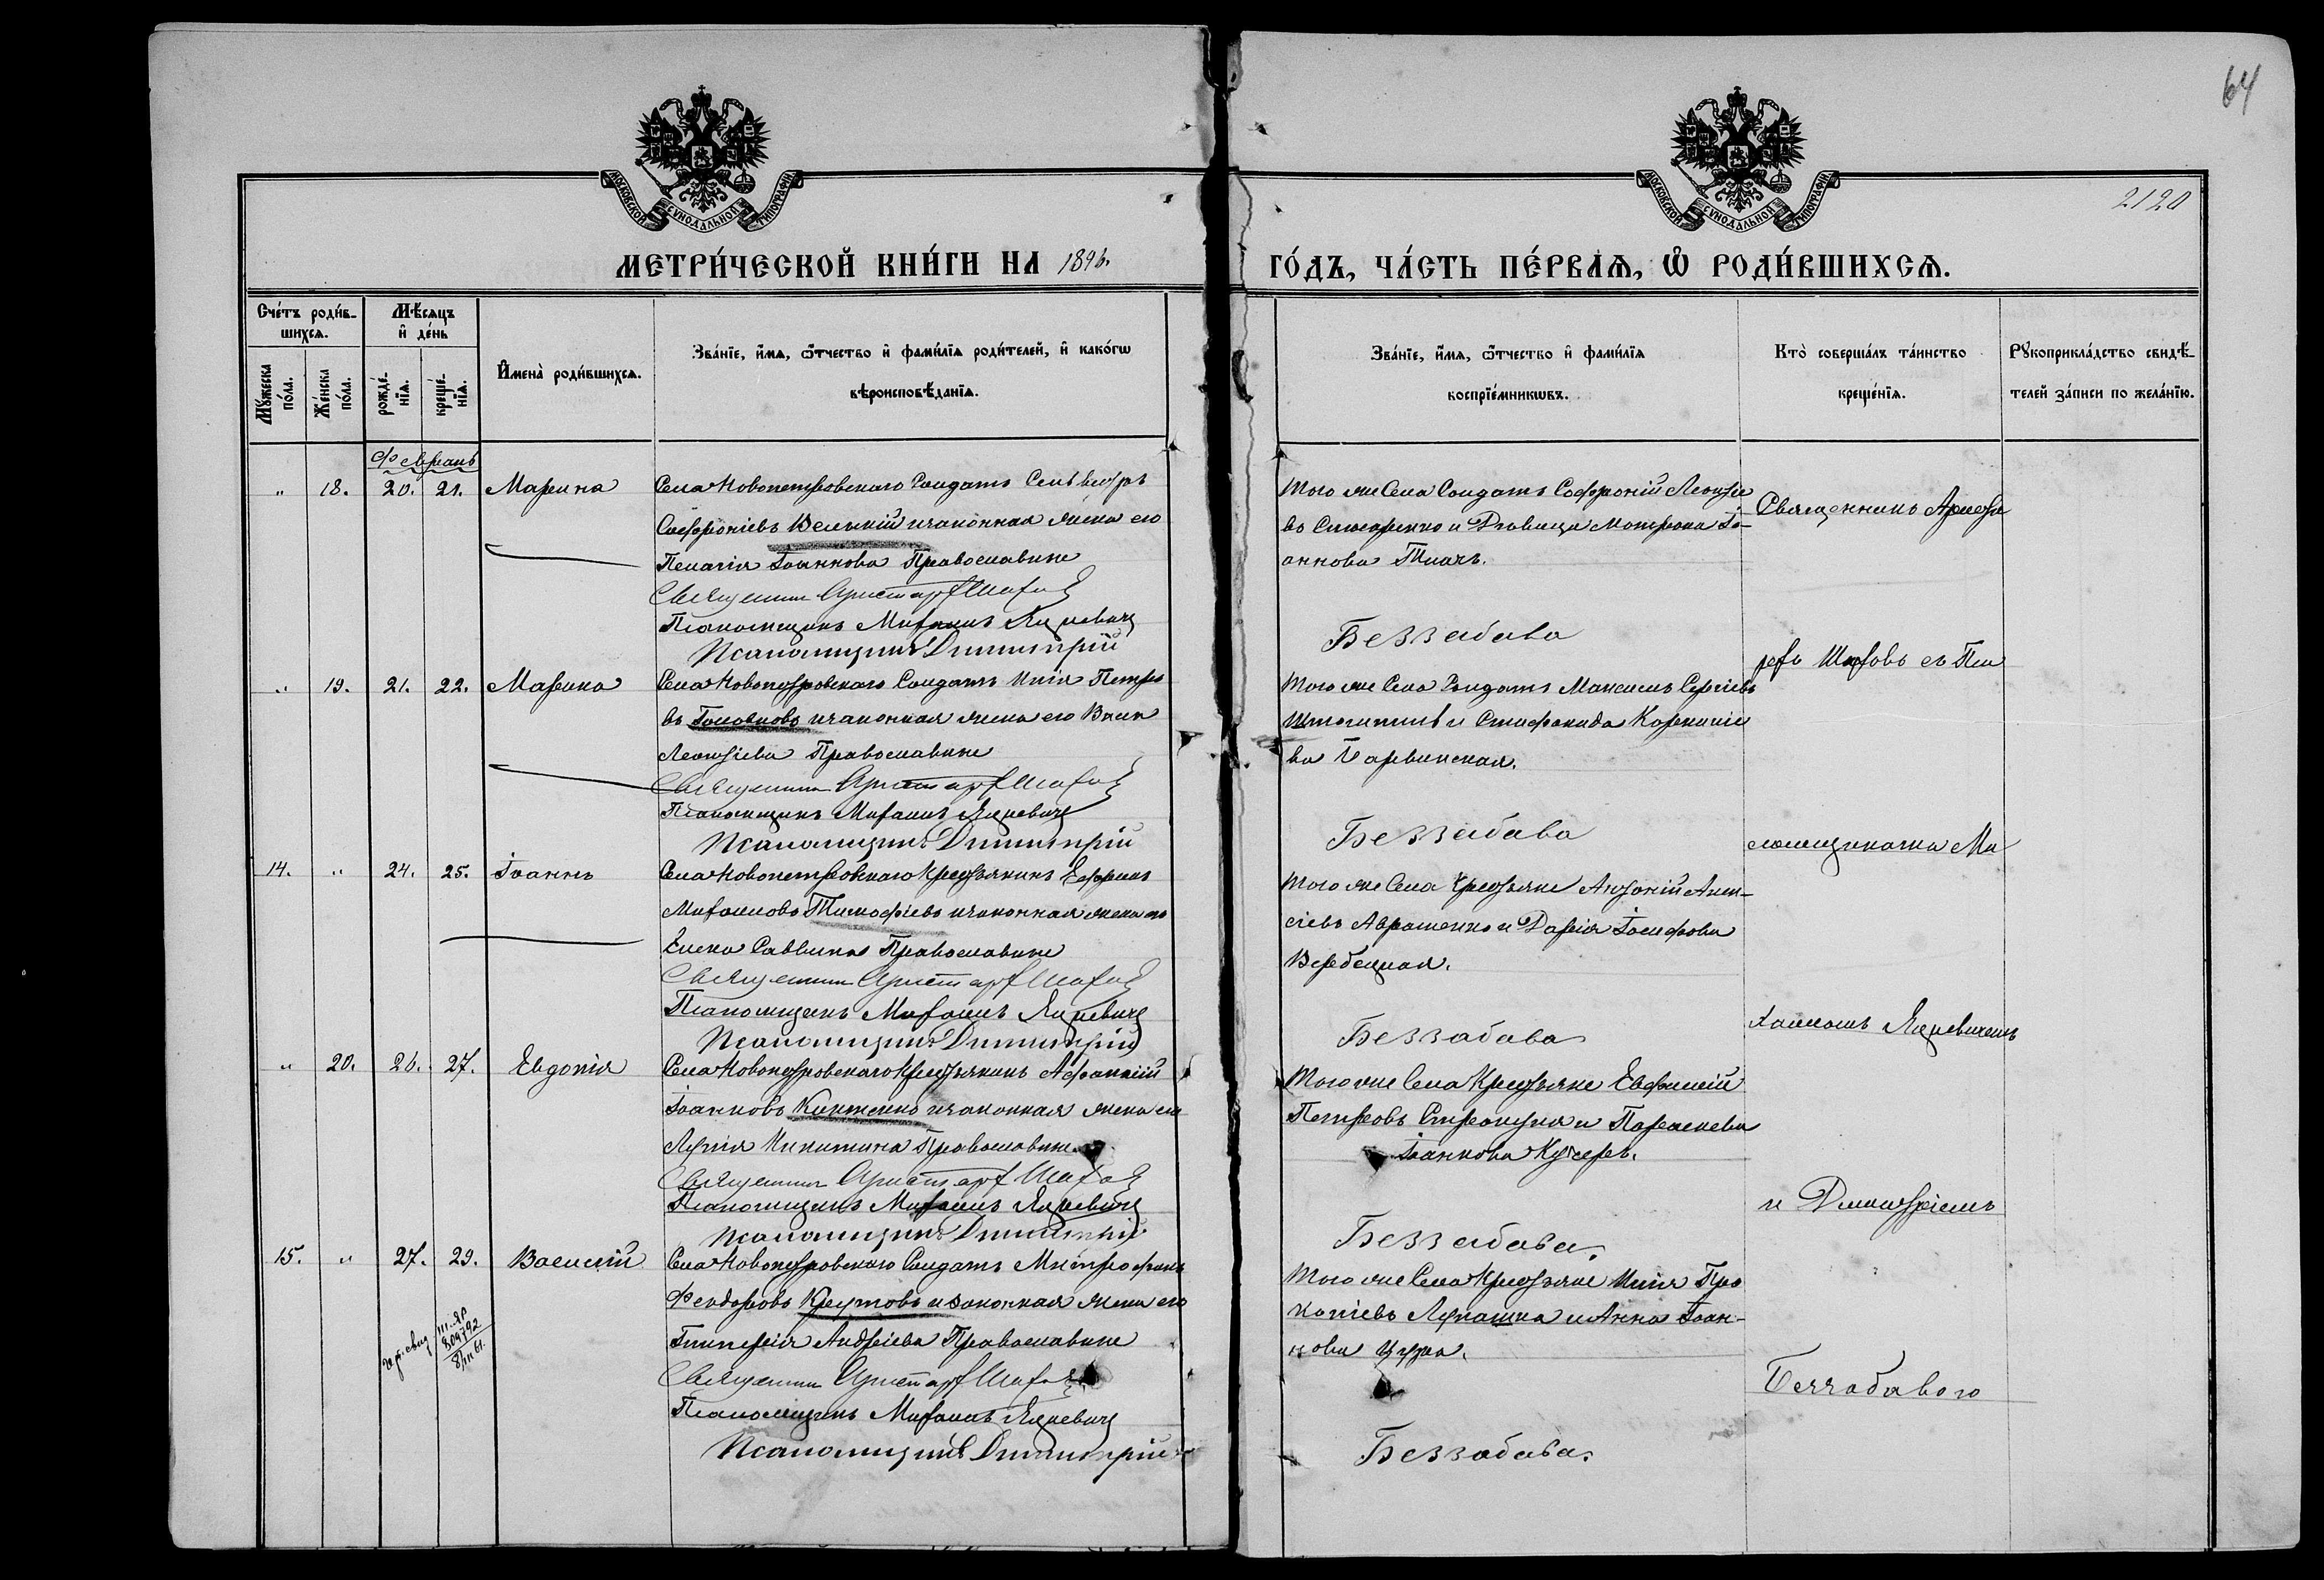 64
2120
МОСКОВСКОЙ СѴНОДАЛЬНОЙ ТИПОГРАФІИ
МОСКОВСКОЙ СѴНОДАЛЬНОЙ ТИПОГРАФІИ
МЕТРИ́ЧЕСКОЙ КНИ́ГИ НА 1896.
ГО́ДЪ, ЧА́СТЬ ПЕ́РВАѦ, Ѡ҆ РОДИ́ВШИХСѦ.
Сче́тъ роди́в-
шихсѧ.
Мꙋ́жеска по́ла.
Же́нска по́ла.
Мѣ́сѧцъ
и҆ де́нь
рожде́-нїѧ.
креще́-нїѧ.
И҆мена̀ роди́вшихсѧ.
Зва́нїе, и҆́мѧ, ѻ҆́тчество и҆ фами́лїѧ роди́телей, и҆ како́гѡ
вѣроисповѣ́данїѧ.
Зва́нїе, и҆́мѧ, ѻ҆́тчество и҆ фами́лїѧ
воспрїе́мникѡвъ.
Кто̀ соверша́лъ та́инство
креще́нїѧ.
Рꙋкоприкла́дство свидѣ́-
телей за́писи по жела́нїю.
Февраль
" 18. 20. 21. Марина
Села Новопетровскаго Солдатъ
Софроніевъ Великій и законная жена его
Пелагія Іоаннова Православные
Священникъ Аристархъ Шахов
Псаломщикъ Михаилъ Яцкевичъ
Псаломщикъ Димитрій
Того же Села Солдатъ Софроній Леонтіе
въ и Дѣвица Матрона Іо-
аннова Ткачъ.
Беззабава
Священникъ Ариста
" 19. 21. 22. Марина
Села Новопетровскаго Солдатъ Илія Петро
въ Головковъ и законная жена его
Леонтіева Православные
Священникъ Аристархъ Шахов
Псаломщикъ Михаилъ Яцкевичъ
Псаломщикъ Димитрій
Того же Села Солдатъ Максимъ Сергіевъ
и Стефанида Корниліе
ва
Беззабава
рхъ Шаховъ съ Пса
14. " 24. 25. Іоаннъ
Села Новопетровскаго Крестьянинъ Ефремъ
Михаиловъ Тимофіевъ и законная жена его
Елена Саввина Православные
Священникъ Аристархъ Шахов
Псаломщикъ Михаилъ Яцкевичъ
Псаломщикъ Димитрій
Того же Села Крестьяне Антоній Алек-
сіевъ Авраменко и Дарія Іосифова
Вербецкая.
Беззабава
ломщиками Ми
хаиломъ Яцкевичемъ
" 20. 26. 27. Евдокія
Села Новопетровскаго Крестьянинъ Афанасій
Іоанновъ и законная жена его
Лукія Никитина Православные.
Священникъ Аристархъ Шахов
Псаломщикъ Михаилъ Яцкевичъ
Псаломщикъ Димитрій
Того же Села Крестьяне Евфимій
Петровъ и Параскева
Іоаннова Кучеръ.
Беззабава.
и Димитріемъ
15. " 27. 29. Василій
Села Новопетровскаго Солдатъ Митрофанъ
Феодоровъ Крутовъ и законная жена его
Гликерія Андріева Православные
Священникъ Аристархъ Шахов
Псаломщикъ Михаилъ Яцкевичъ
Псаломщикъ Димитрій
809792
Того же Села Крестьяне Илія Про
копіевъ Лукашка и Анна Іоан-
нова Цурка.
Беззабава.
Беззабавого